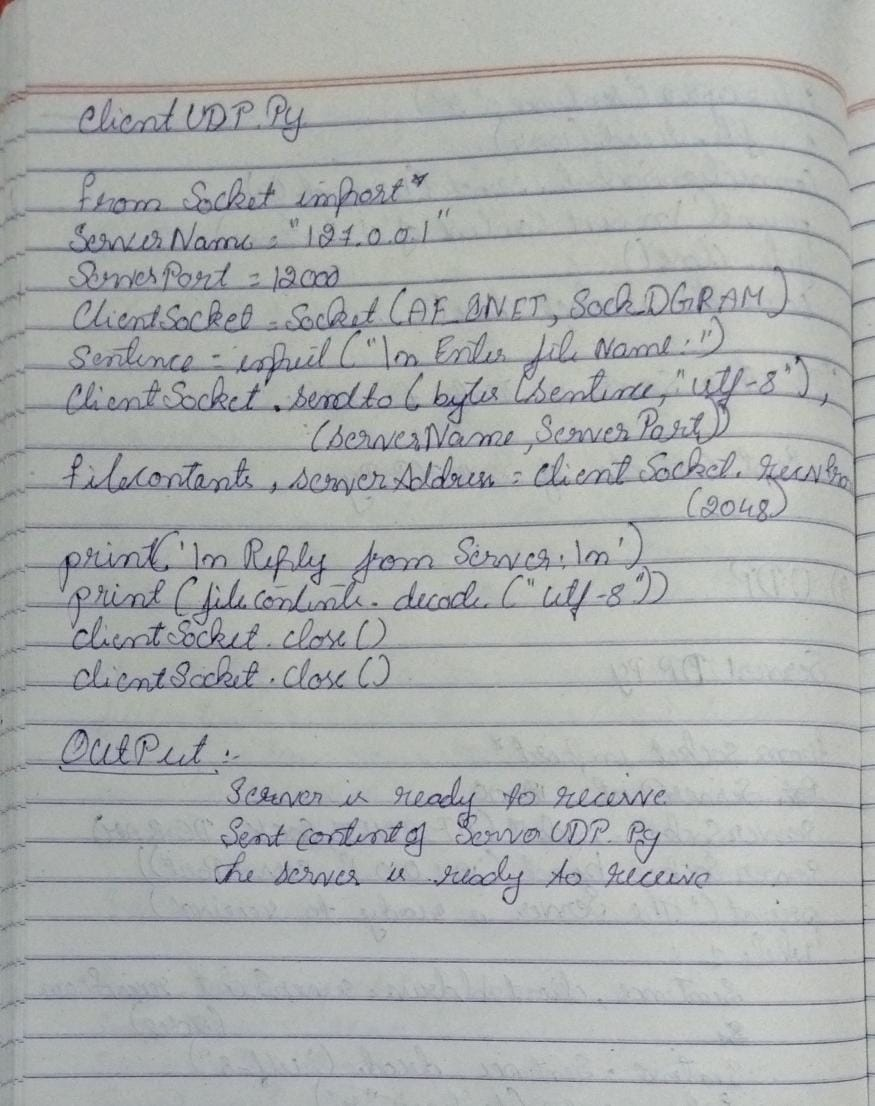 ClientUDP.Py
from Socket import*
ServerName = "127.0.0.1"
ServerPort = 12000
ClientSocket = Socket (AF_INET, Sock_DGRAM)
Sentence = input ("\n Enter file Name:")
ClientSocket.sendto (bytes (sentence, "utf-8"),
(serverName, ServerPort))
filecontants, serverAddress = Client Socket.
(2048)
print('\n Reply from Server:\n')
print (filecontents.decode.("utf-8"))
clientSocket.close()
clientSocket.close()
OutPut :-
Server is ready to receive
Sent content of ServerUDP.Py
The server is ready to receive